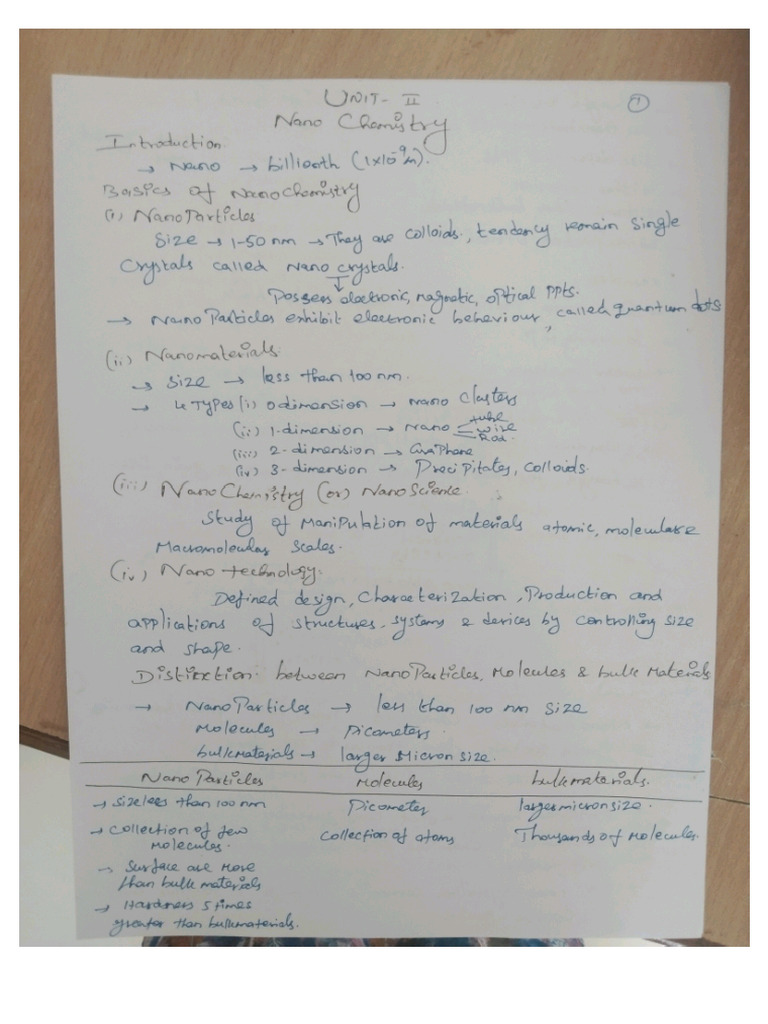 UNIT- II
①
Nano Chemistry
Introduction
→ Nano → billionth (1x10⁻⁹m).
Basics of NanoChemistry
(i) NanoParticles
Size → 1-50 nm → They are colloids, tendency remain single
crystals called Nano crystals.
↓
Possess electronic, magnetic, optical PPts.
→ NanoParticles exhibit electronic behaviour, called quantum dots
(ii) Nanomaterials.
→ Size → less than 100 nm.
→ 4 Types (i) 0 dimension → Nano Clusters
(ii) 1-dimension → Nano tube wire Rod.
(iii) 2-dimension → GraPhene
(iv) 3-dimension → Precipitates, colloids.
(iii) NanoChemistry (or) NanoScience.
Study of Manipulation of materials atomic, molecular &
Macromolecular scales.
(iv) Nano technology.
Defined design, Characterization, Production and
applications of structures, systems & devices by controlling size
and shape.
Distinction between NanoParticles, Molecules & bulk Materials
→ NanoParticles → less than 100 nm size
Molecules → Picometers.
bulkmaterials → larger Micron size.
NanoParticles Molecules bulkmaterials.
→ size less than 100 nm Picometer larger micron size.
→ Collection of few Collection of atoms Thousands of Molecules.
Molecules.
→ Surface are More
than bulk materials
→ Hardness 5 times
greater than bulkmaterials.